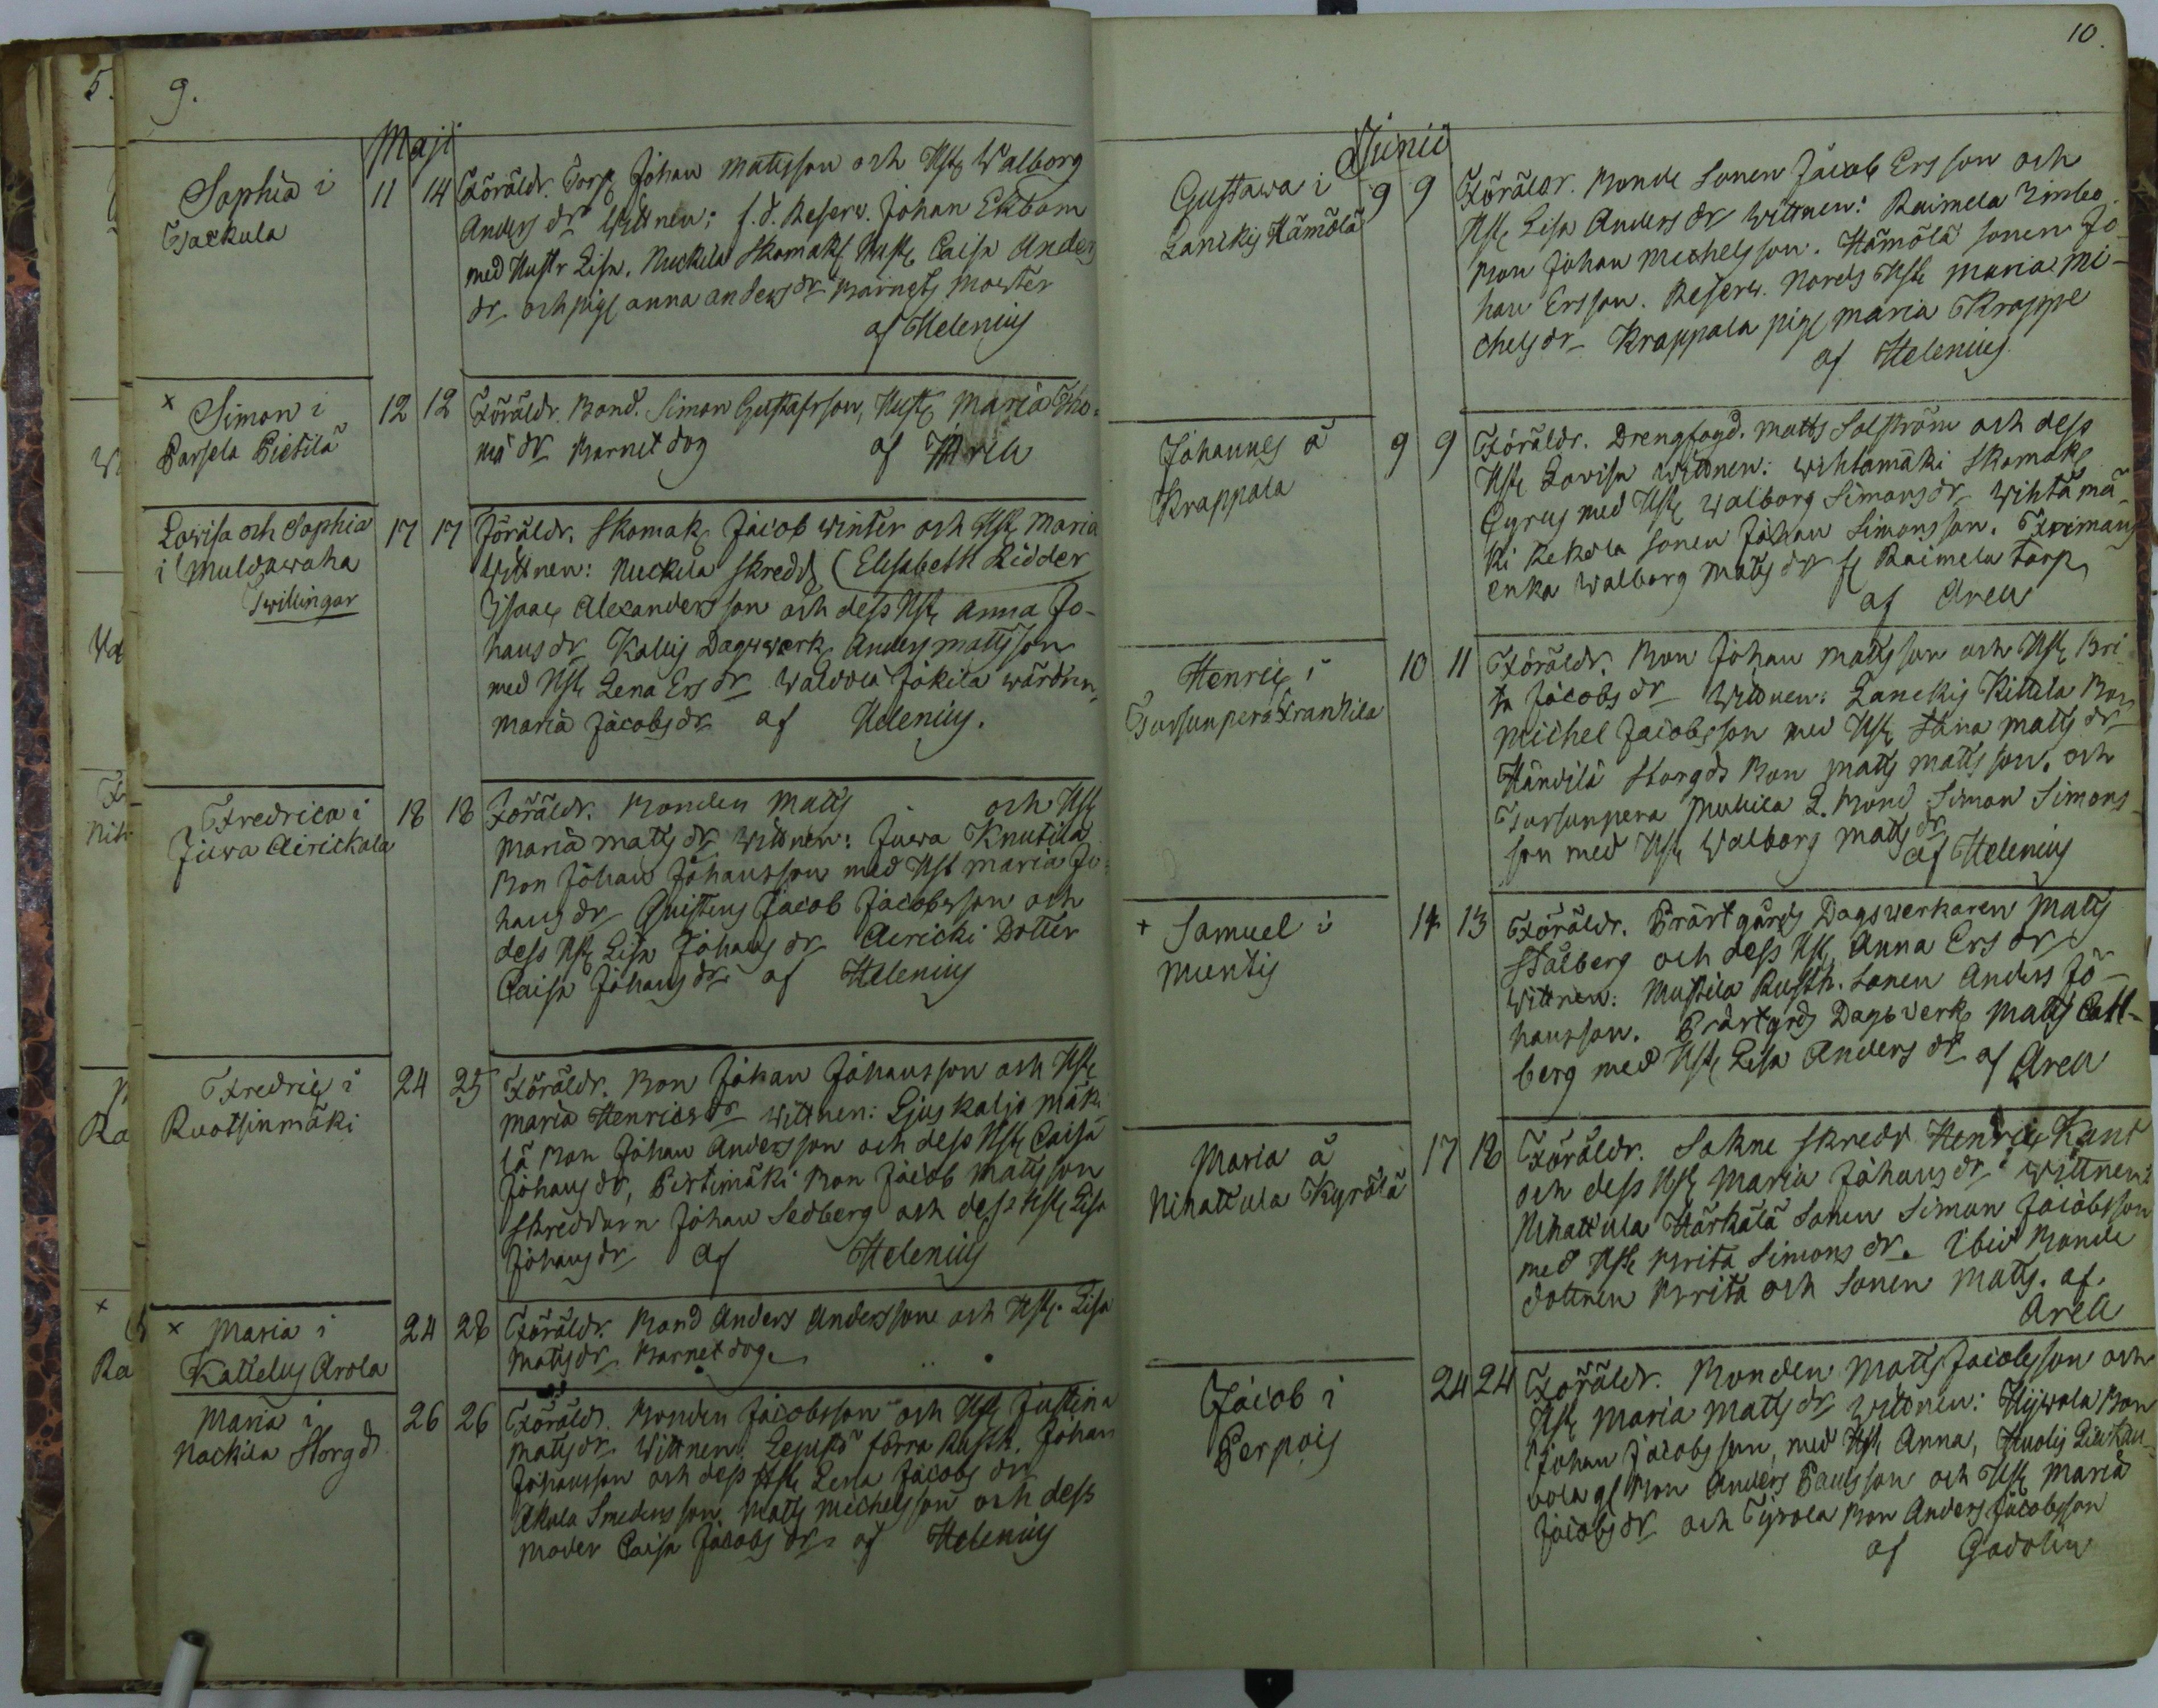 5.
9.
Maji
Sophia i
Tackula
11 14 Föräldr. Torp. Johan Mattsson och Hst. Walborg
Anders dr Wittnen: f. d. Reserv. Johan Ekbom
med Hustr Lisa, Nuckila Skomak. Hust. Caisa Anders
dr och pig. Anna Andersdr Barnets Moster
af Helenius
x Simon i
Parsela Pietilä
12 12 Föräldr. Bond. Simon Gustafsson, Hust. Maria Tho-
mas dr Barnet dog af
Lovisa och Sophia
i Muldawaha
Twillingar
17 17 Föräldr. Skomak. Jacob Winter och Hst. Maria
Wittnen: Nuckila Skredd. (Elisabeth Ridder
Isaac Alexandersson och dess Hst. Anna Jo-
hans dr Dagswerk. Anders Mattsson
med Hst. Lena Ers dr Jokila wärdin.
Maria Jacobs dr af Helenius.
Fredrica i
Juva Airickala
18 18 Föräldr. Bonden Matts och Hst.
Maria Matts dr Wittnen: Juva Knutila
Bon Johan Johansson med Hst Maria Jo-
hans dr Qvistens Jacob Jacobsson och
dess Hst. Lisa Johans dr Airicki Dotter
Caisa Johans dr af Helenius
Fredric i
Ruotsinmäki
24 25 Föräldr. Bon Johan Johansson och Hst.
Maria Henrics dr Wittnen: Ljuskaljo Mäki
lä Bon Johan Andersson och dess Hst. Caisa
Johans dr, Pirtimäki Bon Jacob Mattsson
Skreddarn Johan Sedberg och dess Hst. Lisa
Johans dr af Helenius
x Maria i
Kattelus Arola
24 28 Föräldr. Bond Anders Andersson och Hst. Lisa
Matts dr Barnet dog.
Maria i
Nackila Storgd
26 26 Föräld. Bonden Jacobsson och Hst. Justina
Matts dr Wittnen: förra Rusth. Johan
Johansson och dess Hst. Lena Jacobs dr
Akola Smedens son Matts Michelsson och dess
Moder Caisa Jacobs dr af Helenius
10.
Junii
Gustava i
Lanikis Hämölä
9 9 Föräldr. Bonde Sonen Jacob Ersson och
Hst. Lisa Anders dr Wittnen: Raimela
Bon Johan Michelsson. Hämölä sonen Jo-
han Ersson. Reserv. Nords Hst. Maria Mi-
chels dr Krappala pig. Maria Krappe
af Helenius
Johannes å
Krappala
9 9 Föräldr. Drengfogd. Matts Solström och dess
Hst. Lovisa Wittnen: Wihtamäki Skomak.
Cyrus med Hst. Walborg Simons dr Wihtamä-
ki Rekola sonen Johan Simonsson. Frimans
enka Walborg Matts dr fr Raimela Torp
af Arell
Henric i
Tursunpera Frankila
10 11 Föräldr. Bon Johan Mattsson och Hst. Bri
ta Jacobs dr Wittnen: Lanckis Kittila Bon
Michel Jacobsson med Hst. Anna Matts dr
Händilä Storgds Bon Matts Mattsson. och
Tursunpera Muhila L. Bond Simon Simons-
son med Hst. Walborg Matts dr
af Helenius
+ Samuel i
Muntis
14 13 Föräldr. Prästgårds Dagsverkaren Matts
Stålberg och dess Hst. Anna Ers dr
Wittnen: Mustila Rusth. Sonen Anders Jo-
hansson. Prästgrds Dagsverk. Matts Catt-
berg med Hst. Lisa Anders dr af Arell
Maria å
Nihattula Kyrölä
17 18 Föräldr. Sokne Skredd Henric Kant
och dess Hst. Maria Johans dr Wittnen:
Nihattula Härkälä Sonen Simon Jacobsson
med Hst. Brita Simons dr. Ibid Bonde
dottren Brita och Sonen Matts. af.
Arell
Jacob i
Perpois
24 24 Föräldr. Bonden Matts Jacobsson och
Hst. Maria Matts dr Wittnen: Hijwola Bon
Johan Jacobsson, med Hst. Anna,
Bon Anders Paulsson och Hst. Maria
Jacobs dr och Tyrola Bon Anders Jacobsson
af Gadolin